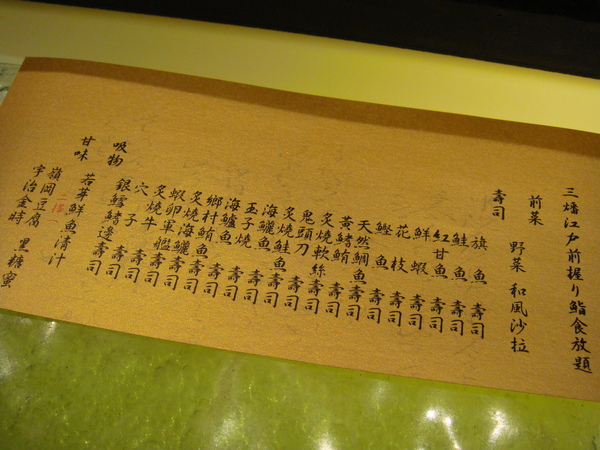 三燔江戸前握り鮨食放題
前菜 野菜 和風沙拉
壽司
旗魚壽司
鮭魚壽司
紅甘魚壽司
鮮蝦壽司
花枝壽司
鰹魚壽司
天然鯛魚壽司
黃鰭鮪壽司
炙燒軟絲壽司
鬼頭刀壽司
炙燒鮭魚壽司
海鱺魚壽司
玉子燒壽司
海鱸魚壽司
鄉村鮪魚壽司
炙燒海鱺壽司
蝦卵軍艦壽司
炙燒牛壽司
穴子壽司
銀鱈鰭邊壽司
吸物
若芽鮮魚清汁
甘味
嶺岡豆腐
二擇一
宇治金時 黑糖蜜